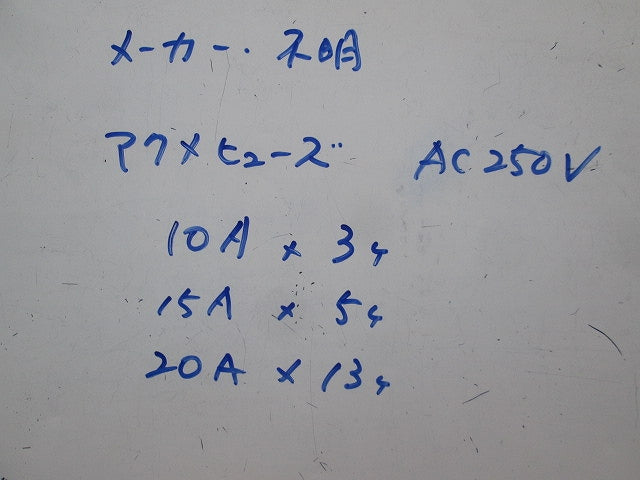 メーカー・不明
アクメヒューズ AC250V
10A × 3ヶ
15A × 5ヶ
20A × 13ヶ